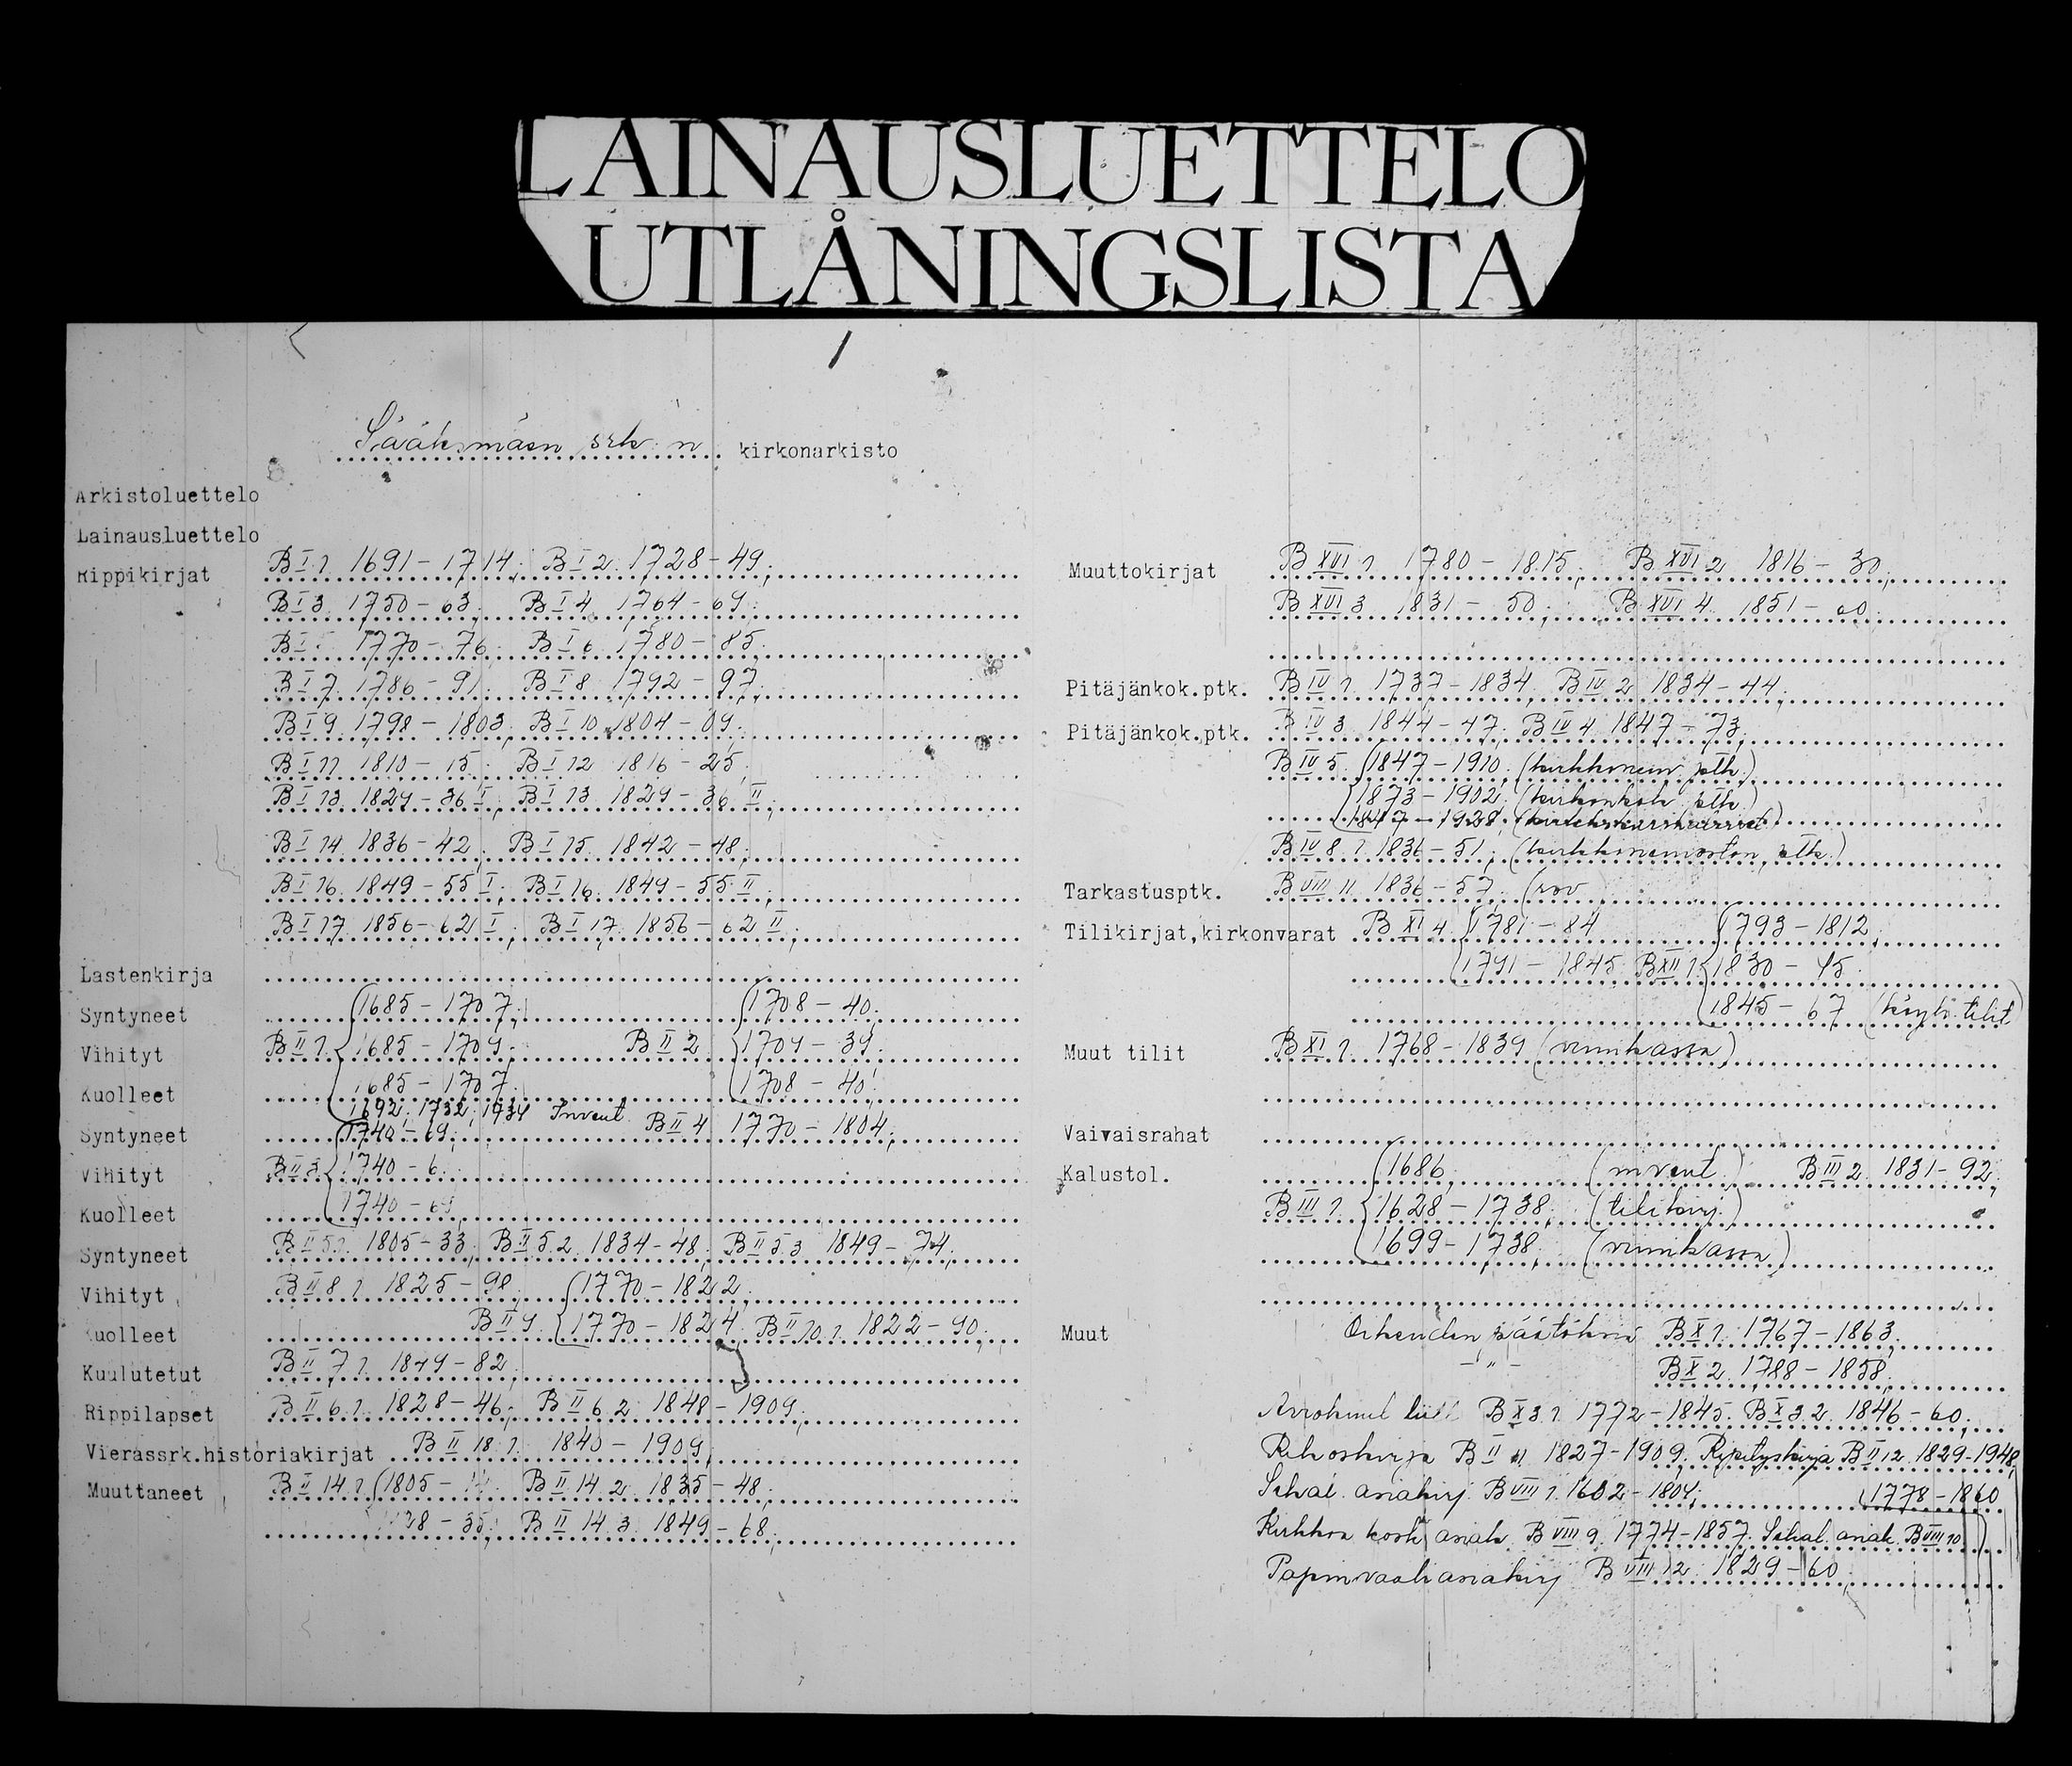 LAINAUSLUETTELO
UTLÅNINGSLISTA
Sääksmäen srk:n kirkonarkisto
Arkistoluettelo
Lainausluettelo
Rippikirjat B I 1. 1691-1714; B I 2. 1728-49;
B I 3. 1750-63; B I 4. 1764-69;
B I 1770-76; B I 6. 1780-85;
B I 7. 1786-91; B I 8. 1792-97;
B I 9. 1798-1803; B I 10. 1804-09;
B I 11. 1810-15; B I 12. 1816-25;
B I 13. 1829-36 I; B I 13. 1829-36 II;
B I 14. 1836-42; B I 15. 1842-48;
B I 16. 1849-55 I; B I 16. 1849-55 II;
B I 17. 1856-62 I; B I 17. 1856-62 II;
Lastenkirja
Syntyneet 1685-1707; 1708-40;
Vihityt B II 1. 1685-1709; B II 2 1709-39;
Kuolleet 1685-1707; 1708-40;
1692; 1732; 1734 Invent.
Syntyneet 1740-69; B II 4 1770-1804;
Vihityt B II 3 1740-6
Kuolleet 1740-69
Syntyneet B II 5.1. 1805-33; B II 5.2. 1834-48; B II 5.3. 1849-74;
Vihityt B II 8.1. 1825-98; 1770-1822;
Kuolleet B II 9. 1770-1824; B II 10.1. 1822-90;
Kuulutetut B II 7.1. 1849-82;
Rippilapset B II 6.1. 1828-46; B II 6.2. 1848-1909;
Vierassrk.historiakirjat B II 18.1. 1840-1909;
Muuttaneet B II 14.1. 1805- B II 14.2. 1835-48;
28-35; B II 14.3. 1849-68;
Muuttokirjat B XVI 1. 1780-1815; B XVI 2 1816-30;
B XVI 3. 1831-50; B XVI 4. 1851-60;
Pitäjänkok.ptk. B IV 1. 1737-1834; B IV 2. 1834-44;
Pitäjänkok.ptk. B IV 3. 1844-47; B IV 4. 1847-73;
B IV 5. 1847-1910; (kirkkoneuv. ptk.)
1873-1902; (kirkonkok. ptk.)
1847-1928;
B IV 8.1. 1836-51; (kirkkoneuvoston ptk.)
Tarkastusptk. B VIII 11. 1836-57. (rov
Tilikirjat,kirkonvarat B XI 4. 1781-84 1793-1812;
1791-1845 B XII 1. 1830-45;
1845-67 (köyh. tilit)
Muut tilit B XI 1. 1768-1839 (viinikassa)
Vaivaisrahat
Kalustol. 1686; (invent.) B III 2. 1831-92;
B III 1. 1628-1738; (tilikirj.)
1699-1738; (viinikassa)
Muut Oikeuden päätöksiä B X 1. 1767-1863;
-"- B X 2. 1788-1858;
B X 3.1. 1772-1845; B X 3.2. 1846-60;
Rikoskirja B II 11. 1827-1909; Ripityskirja B II 12. 1829-1948;
Sekal. asiakirj. B VIII 1. 1602-1804; 1778-1860
Kirkkoa kosk. asiak. B VIII 9. 1774-1857. Sekal. asiak. B VIII 10.
Papinvaaliasiakirj. B VIII 12. 1829-60;